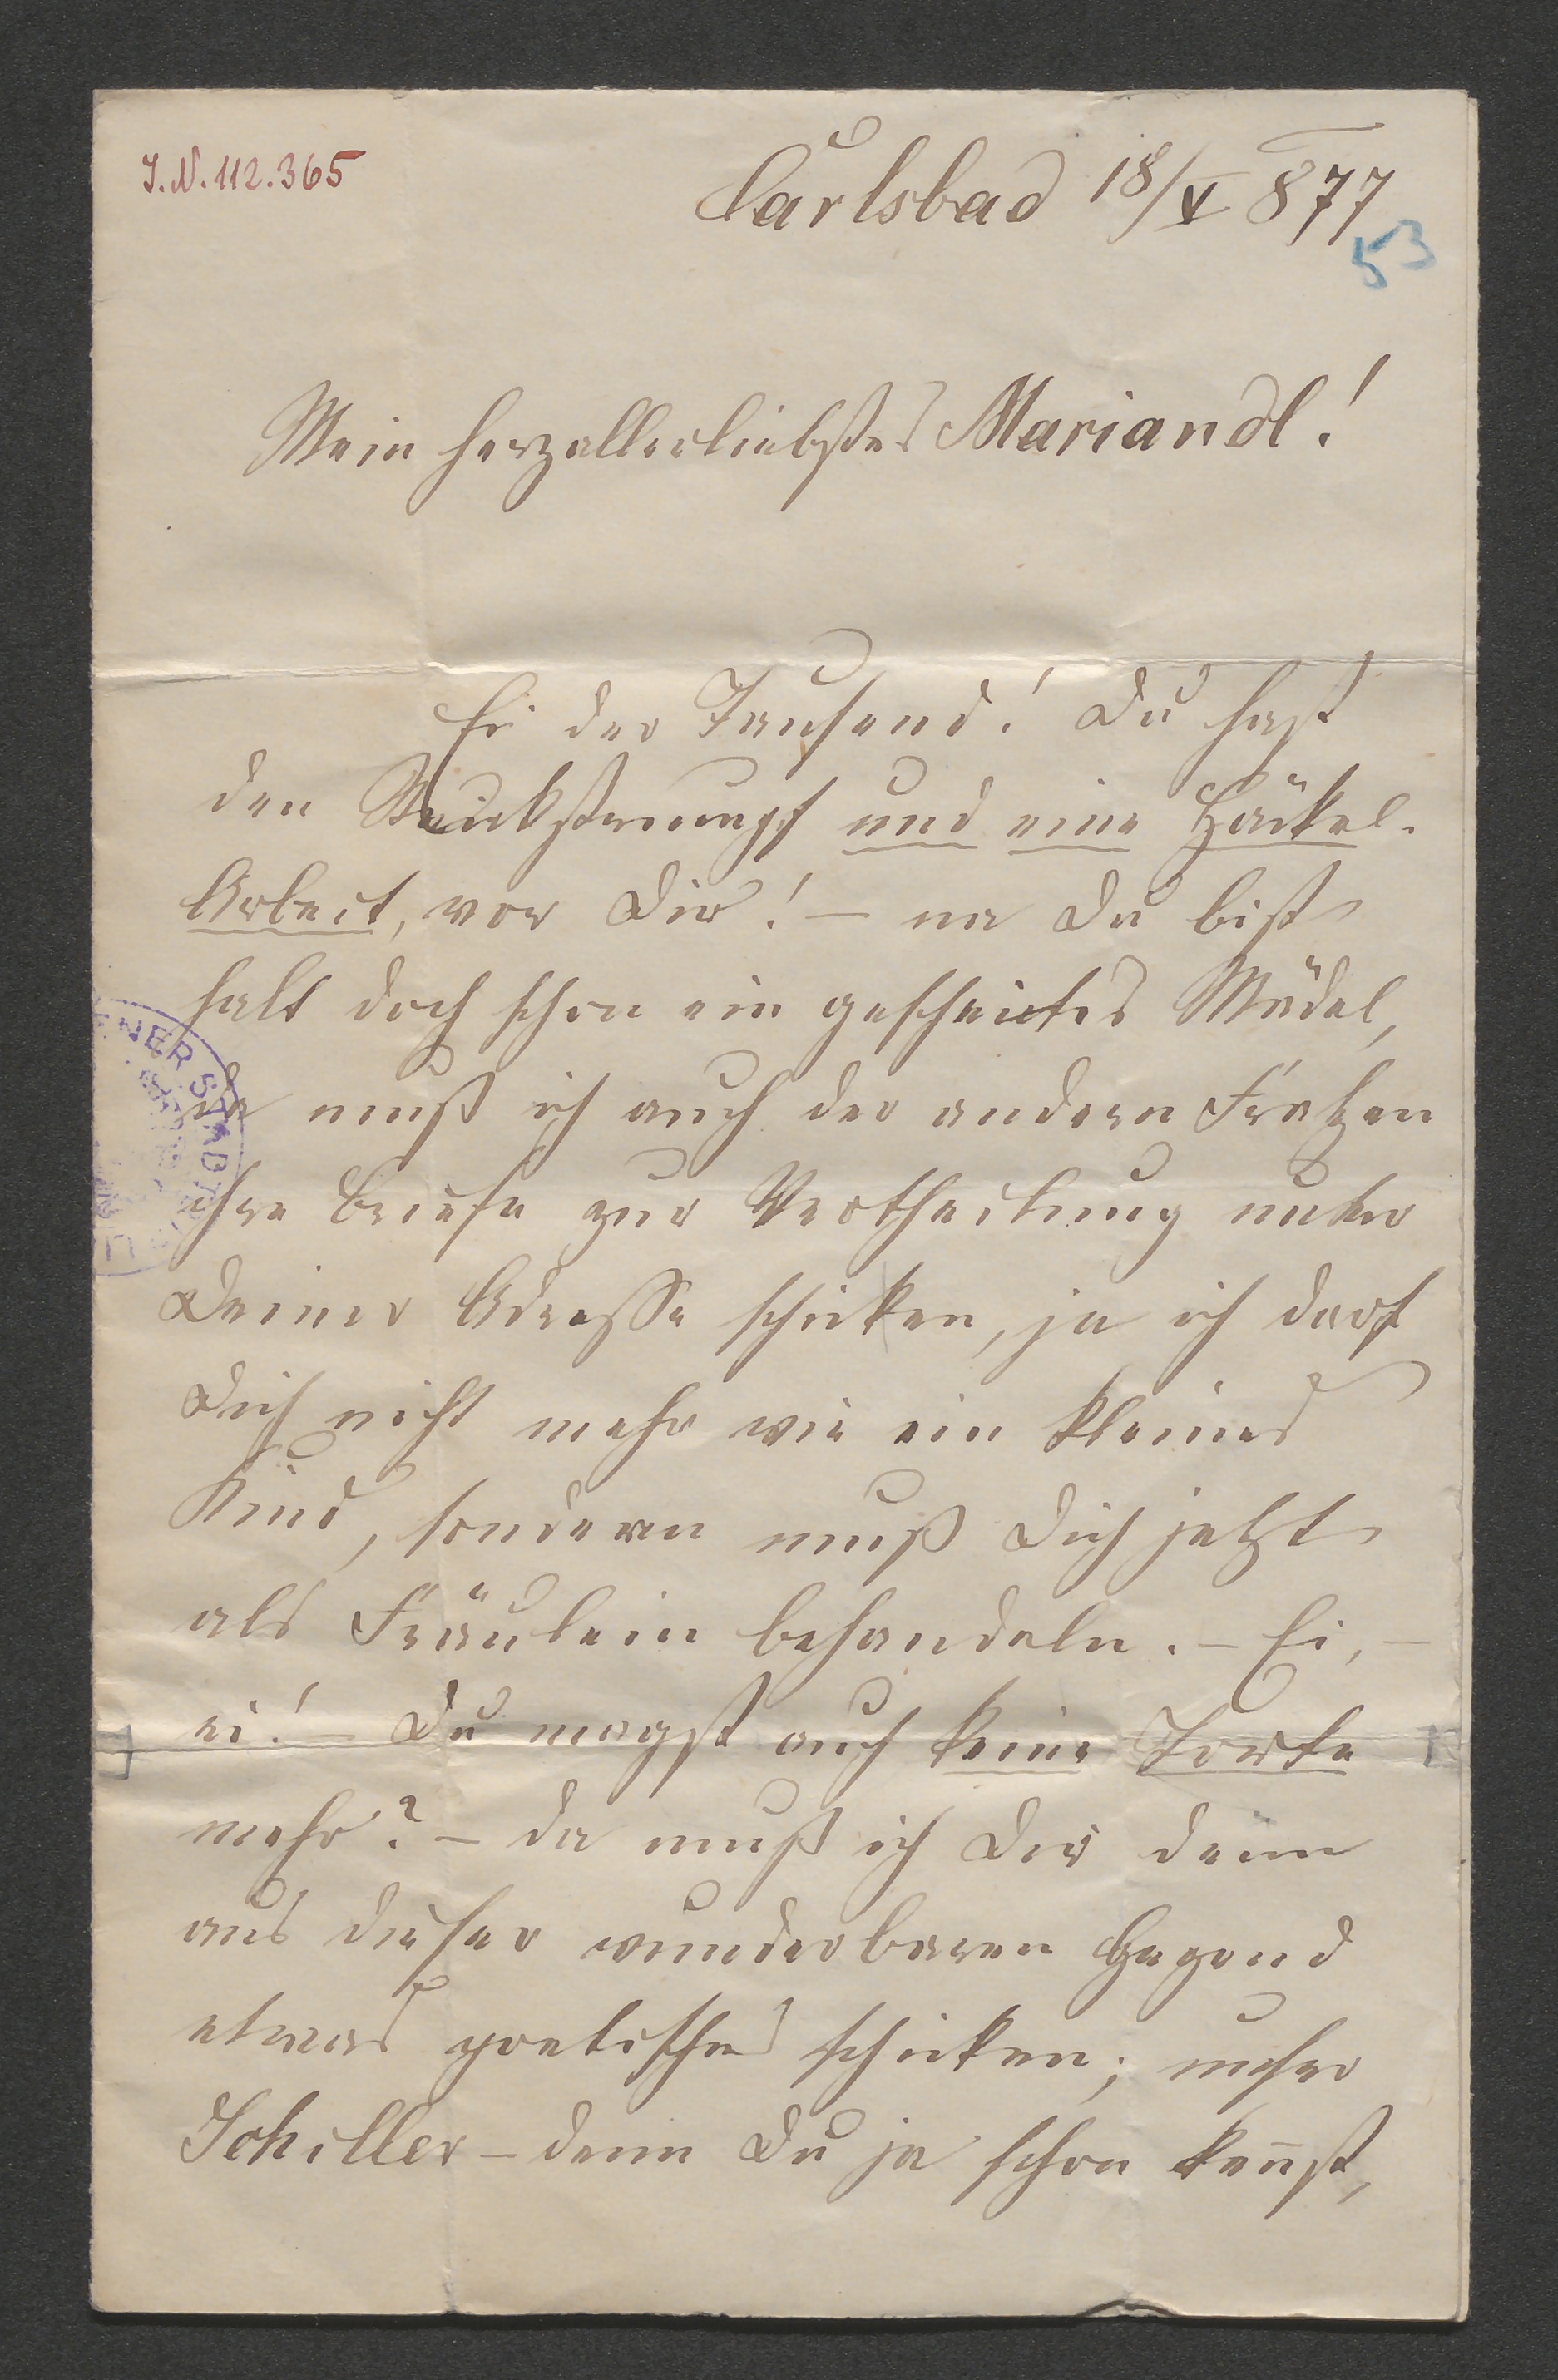 I.N. 112.365
Carlsbad 18/V 877
53
Mein herzallerliebstes Mariandl!
Ei der Tausend! Du hast
den Strickstrumpf und eine Häckel-
Arbeit, vor Dir! – na Du bist
halt doch schon ein gescheidtes Mädel,
da muß ich auch der andern Fratzen
ihre Briefe zur Vertheilung unter
Deiner Adresse schicken, ja ich darf
Dich nicht mehr wie ein kleines
Kind, sondern muß Dich jetzt
als Fräulein behandeln. – Ei, –
ei! – Du magst auch keine Torte
mehr? – da muß ich Dir denn
aus dieser wunderbaren Gegend
etwas poetisches schicken; unser
Schiller – denn Du ja schon ken̄st,
NER STADT